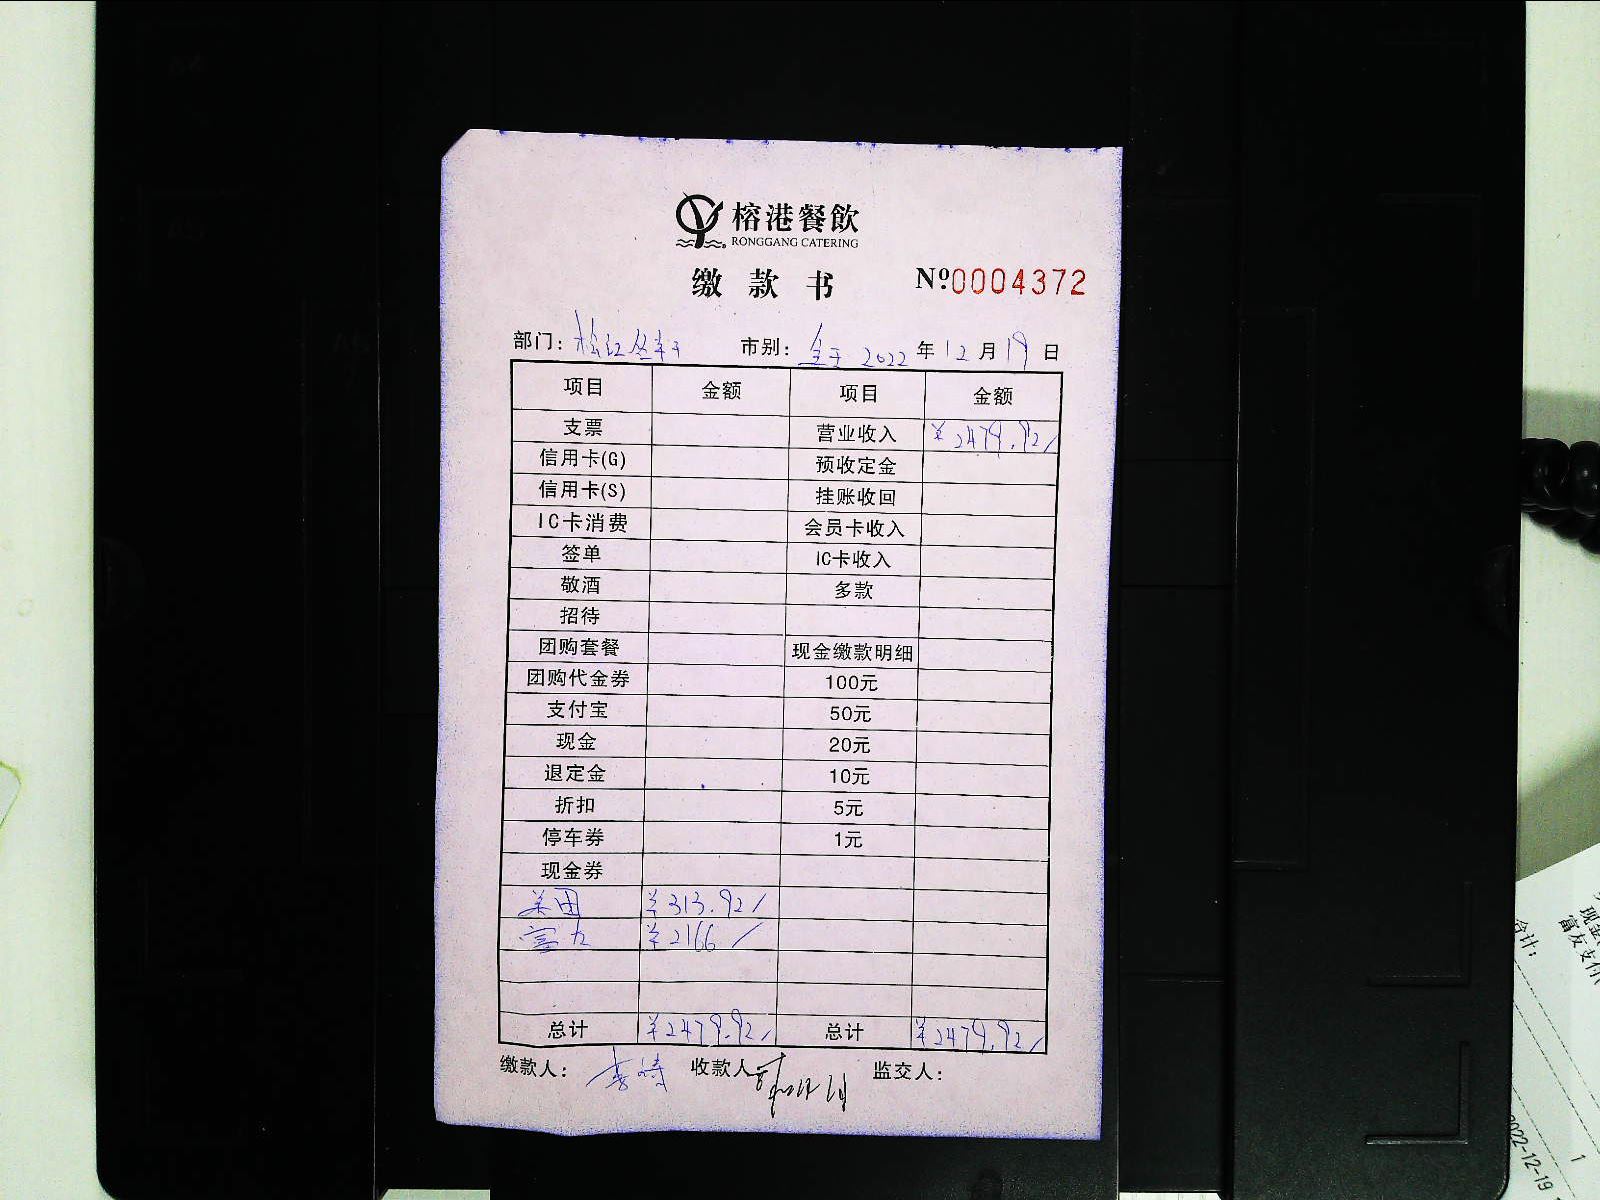 榕港餐飲
RONGGANG CATERING
缴款书 №0004372
部门: 松江 市别: 全天 2022年12月19日
项目 金额 项目 金额
支票 营业收入 ¥2479.92/
信用卡(G) 预收定金
信用卡(S) 挂账收回
IC卡消费 会员卡收入
签单 IC卡收入
敬酒 多款
招待
团购套餐 现金缴款明细
团购代金券 100元
支付宝 50元
现金 20元
退定金 10元
折扣 5元
停车券 1元
现金券
美团 ¥313.92/
富友 ¥2166/
总计 ¥2479.92/ 总计 ¥2479.92/
缴款人: 收款人: 监交人:
现金
富友支付
合计:
2022-12-19
1